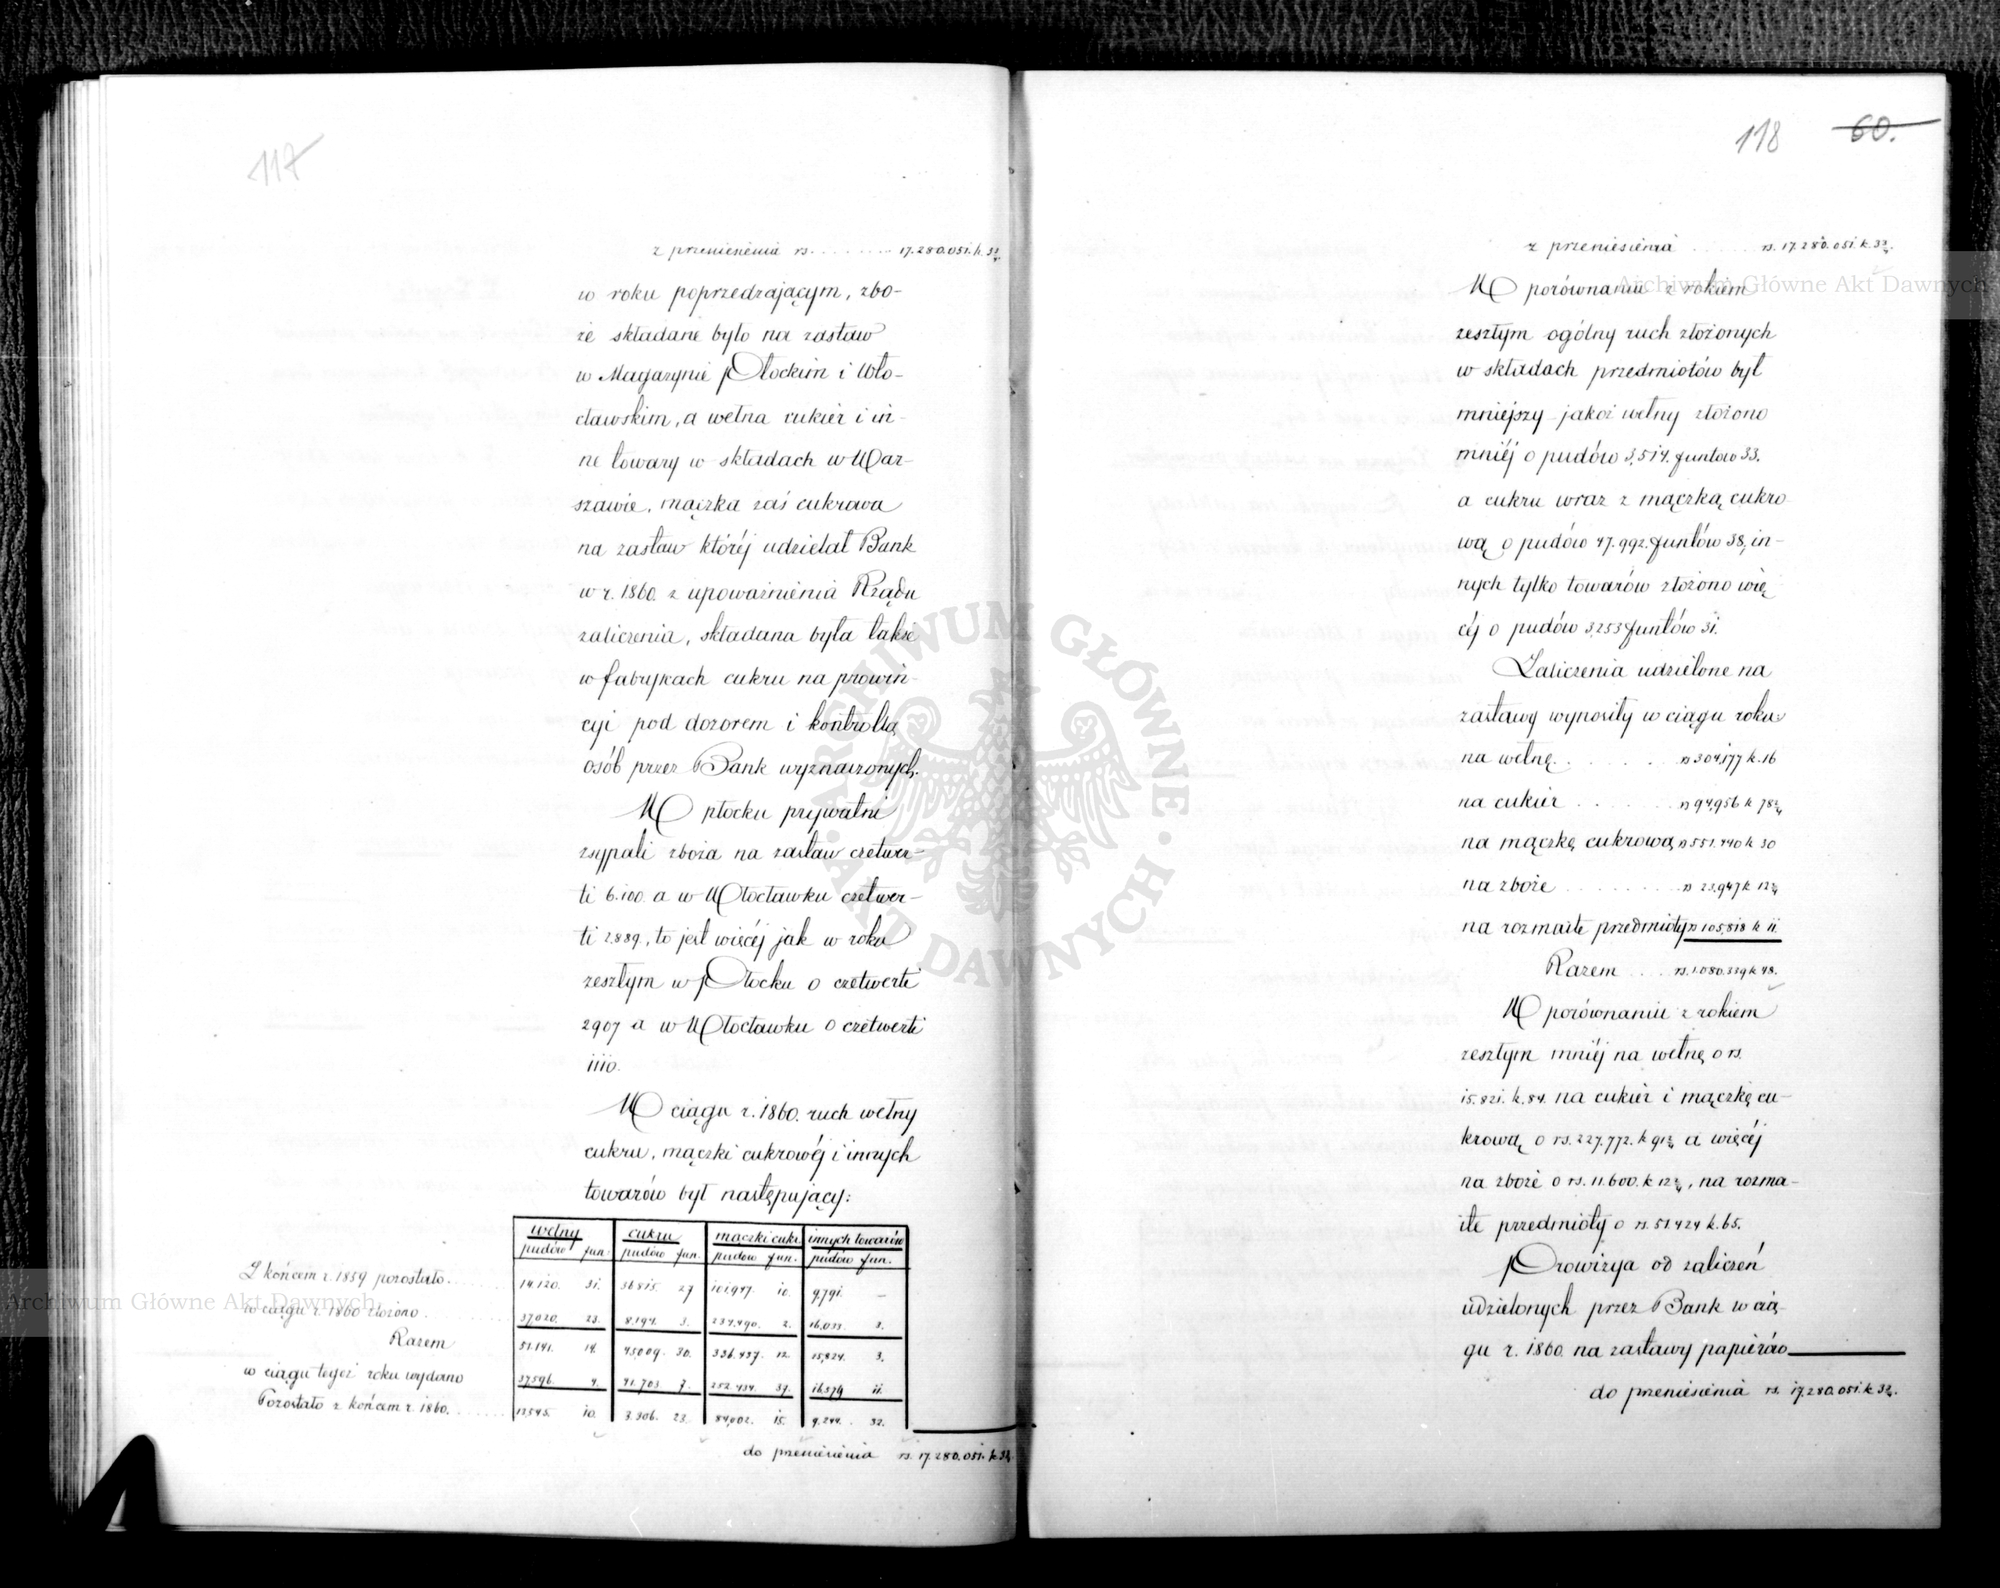 117
z przeniesienia rs. . . . . . . . . 17.280.051. k. 32
w roku poprzedzającym, zbo-
że składane było na zastaw
w Magazynie Płockim i Wło-
cławskim, a wełna cukier i in-
ne towary w składach w War-
szawie, mączka zaś cukrowa
na zastaw której udzielał Bank
w r. 1860. z upoważnienia Rządu
zaliczenia, składana była także
w fabrykach cukru na prowin-
cyi pod dozorem i kontrolą
osób przez Bank wyznaczonych.
W Płocku prywatni
zsypali zboża na zastaw czetwer-
ti 6.100. a w Włocławku czetwer-
ti 2.889, to jest więcéj jak w roku
zeszłym w Płocku o czetwerti
2907 a w Włocławku o czetwerti
1110.
W ciągu r. 1860. ruch wełny
cukru, mączki cukrowéj i innych
towarów był następujący:
wełny cukru mączki cukr. innych towarów
pudów fun. pudów fun. pudów fun. pudów fun.
Z końcem r. 1859 pozostało. 14.120. 31. 36.815. 27 101.947. 10. 9.791. —
w ciągu r. 1860 złożono. 37.020. 23. 8.194. 3. 234.490. 2. 16.033. 3.
Razem 51.141. 14. 45.009. 30. 336.437. 12. 25.824. 3.
w ciągu tegoż roku wydano 37.596. 4. 41.703. 7. 252.434. 37. 16.579 11.
Pozostało z końcem r. 1860. 13.545. 10. 3.306. 23. 84.002. 15. 9.244. 32.
do przeniesienia rs. 17.280.051. k 32
118 60.
z przeniesienia rs. 17.280.051. k. 32.
W porównaniu z rokiem
zeszłym ogólny ruch złożonych
w składach przedmiotów był
mniejszy jakoż wełny złożono
mniéj o pudów 3.514. funtów 33.
a cukru wraz z mączką cukro
wą o pudów 47.992. funtów 38, in-
nych tylko towarów złożono wię
céj o pudów 3.253 funtów 31.
Zaliczenia udzielone na
zastawy wynosiły w ciągu roku
na wełnę. . . . . . rs 304.177 k. 16
na cukier . . . . . . rs 94.956 k 78½
na mączkę cukrową rs 551.440 k 30
na zboże . . . . . . rs 23.947 k 12½
na rozmaite przedmioty rs 105.818 k 11.
Razem . . . rs. 1.080.339 k 48.
W porównaniu z rokiem
zeszłym mniéj na wełnę o rs.
15.821. k. 84. na cukier i mączkę cu-
krową o rs. 227.772. k 91½ a więcéj
na zboże o rs. 11.600. k 12½, na rozma-
ite przedmioty o rs. 51.424 k. 65.
Prowizya od zaliczeń
udzielonych przez Bank w cią-
gu r. 1860. na zastawy papierów
do przeniesienia rs. 17.280.051. k 32.
Archiwum Główne Akt Dawnych
Archiwum Główne Akt Dawnych
ARCHIWUM GŁÓWNE · AKT DAWNYCH ·